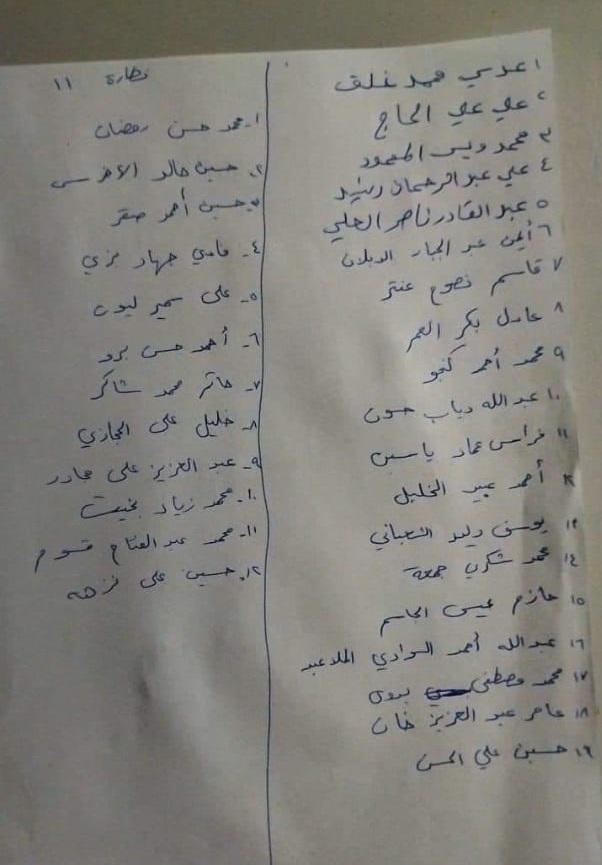 ١ عدي محمد خلف
٢ علي علي الحاج
٣ محمد ويس المحمود
٤ علي عبد الرحمان رشيد
٥ عبد القادر ناصر العلي
٦ أيمن عبد الجبار الدبلان
٧ قاسم نصوح عنتر
٨ عادل بكر العمر
٩ محمد أحمد كنجو
١٠ عبد الله دياب حسون
١١ فراس عماد ياسين
١٢ أحمد عبيد الخليل
١٣ يوسف وليد الشعباني
١٤ محمد شكري جمعة
١٥ حازم عيسى الجاسم
١٦ عبد الله أحمد السوادي الملا عبد
١٧ محمد مصطفى بدوي
١٨ عامر عبد العزيز خان
١٩ حسين علي الحسن
نظارة ١١
١- محمد حسن رمضان
٢- حسين خالد الأخرس
٣- حسين أحمد صقر
٤- فادي جهاد
٥- على سمير ليون
٦- أحمد حسن برو
٧- حاتم محمد شاكر
٨- خليل على الحجازي
٩- عبد العزيز على
١٠- محمد زياد بخيت
١١- محمد عبد الفتاح قسوم
١٢- حسين على نزهه